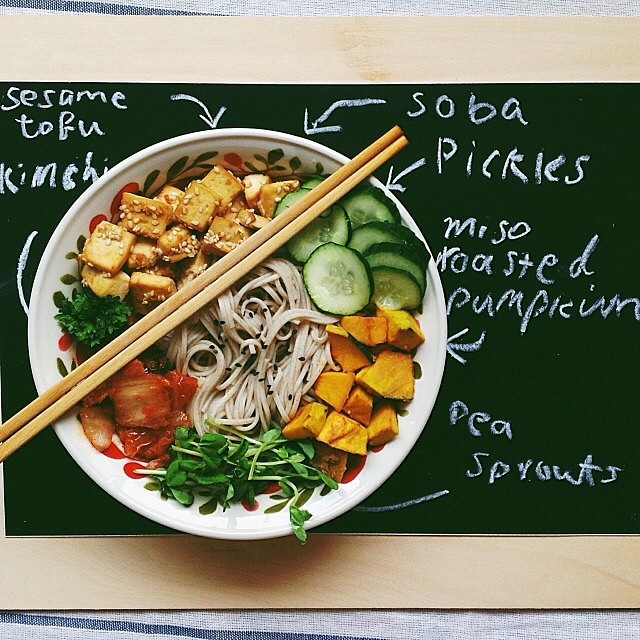 sesame
tofu
kimchi
soba
pickles
miso
roasted
pumpkium
pea
sprouts